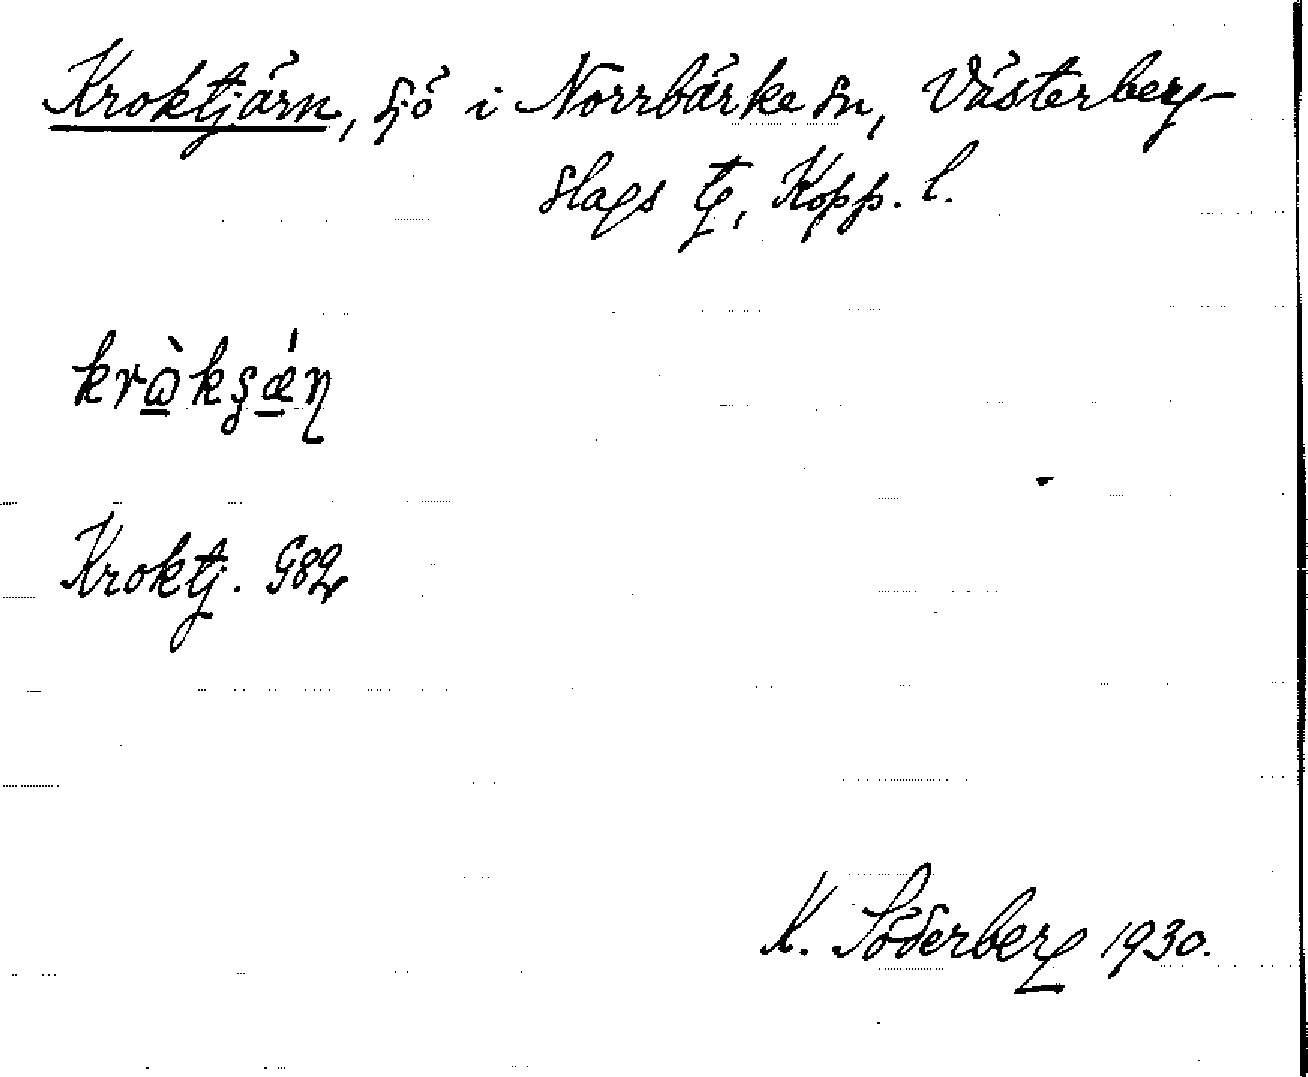 Kroktjärn, sjö i Norrbärke sn, Västerberg-
slags tg, Kopp. l.
krὼ̲kʂǽ̲ɳ
Kroktj. G82
K. Söderberg 1930.